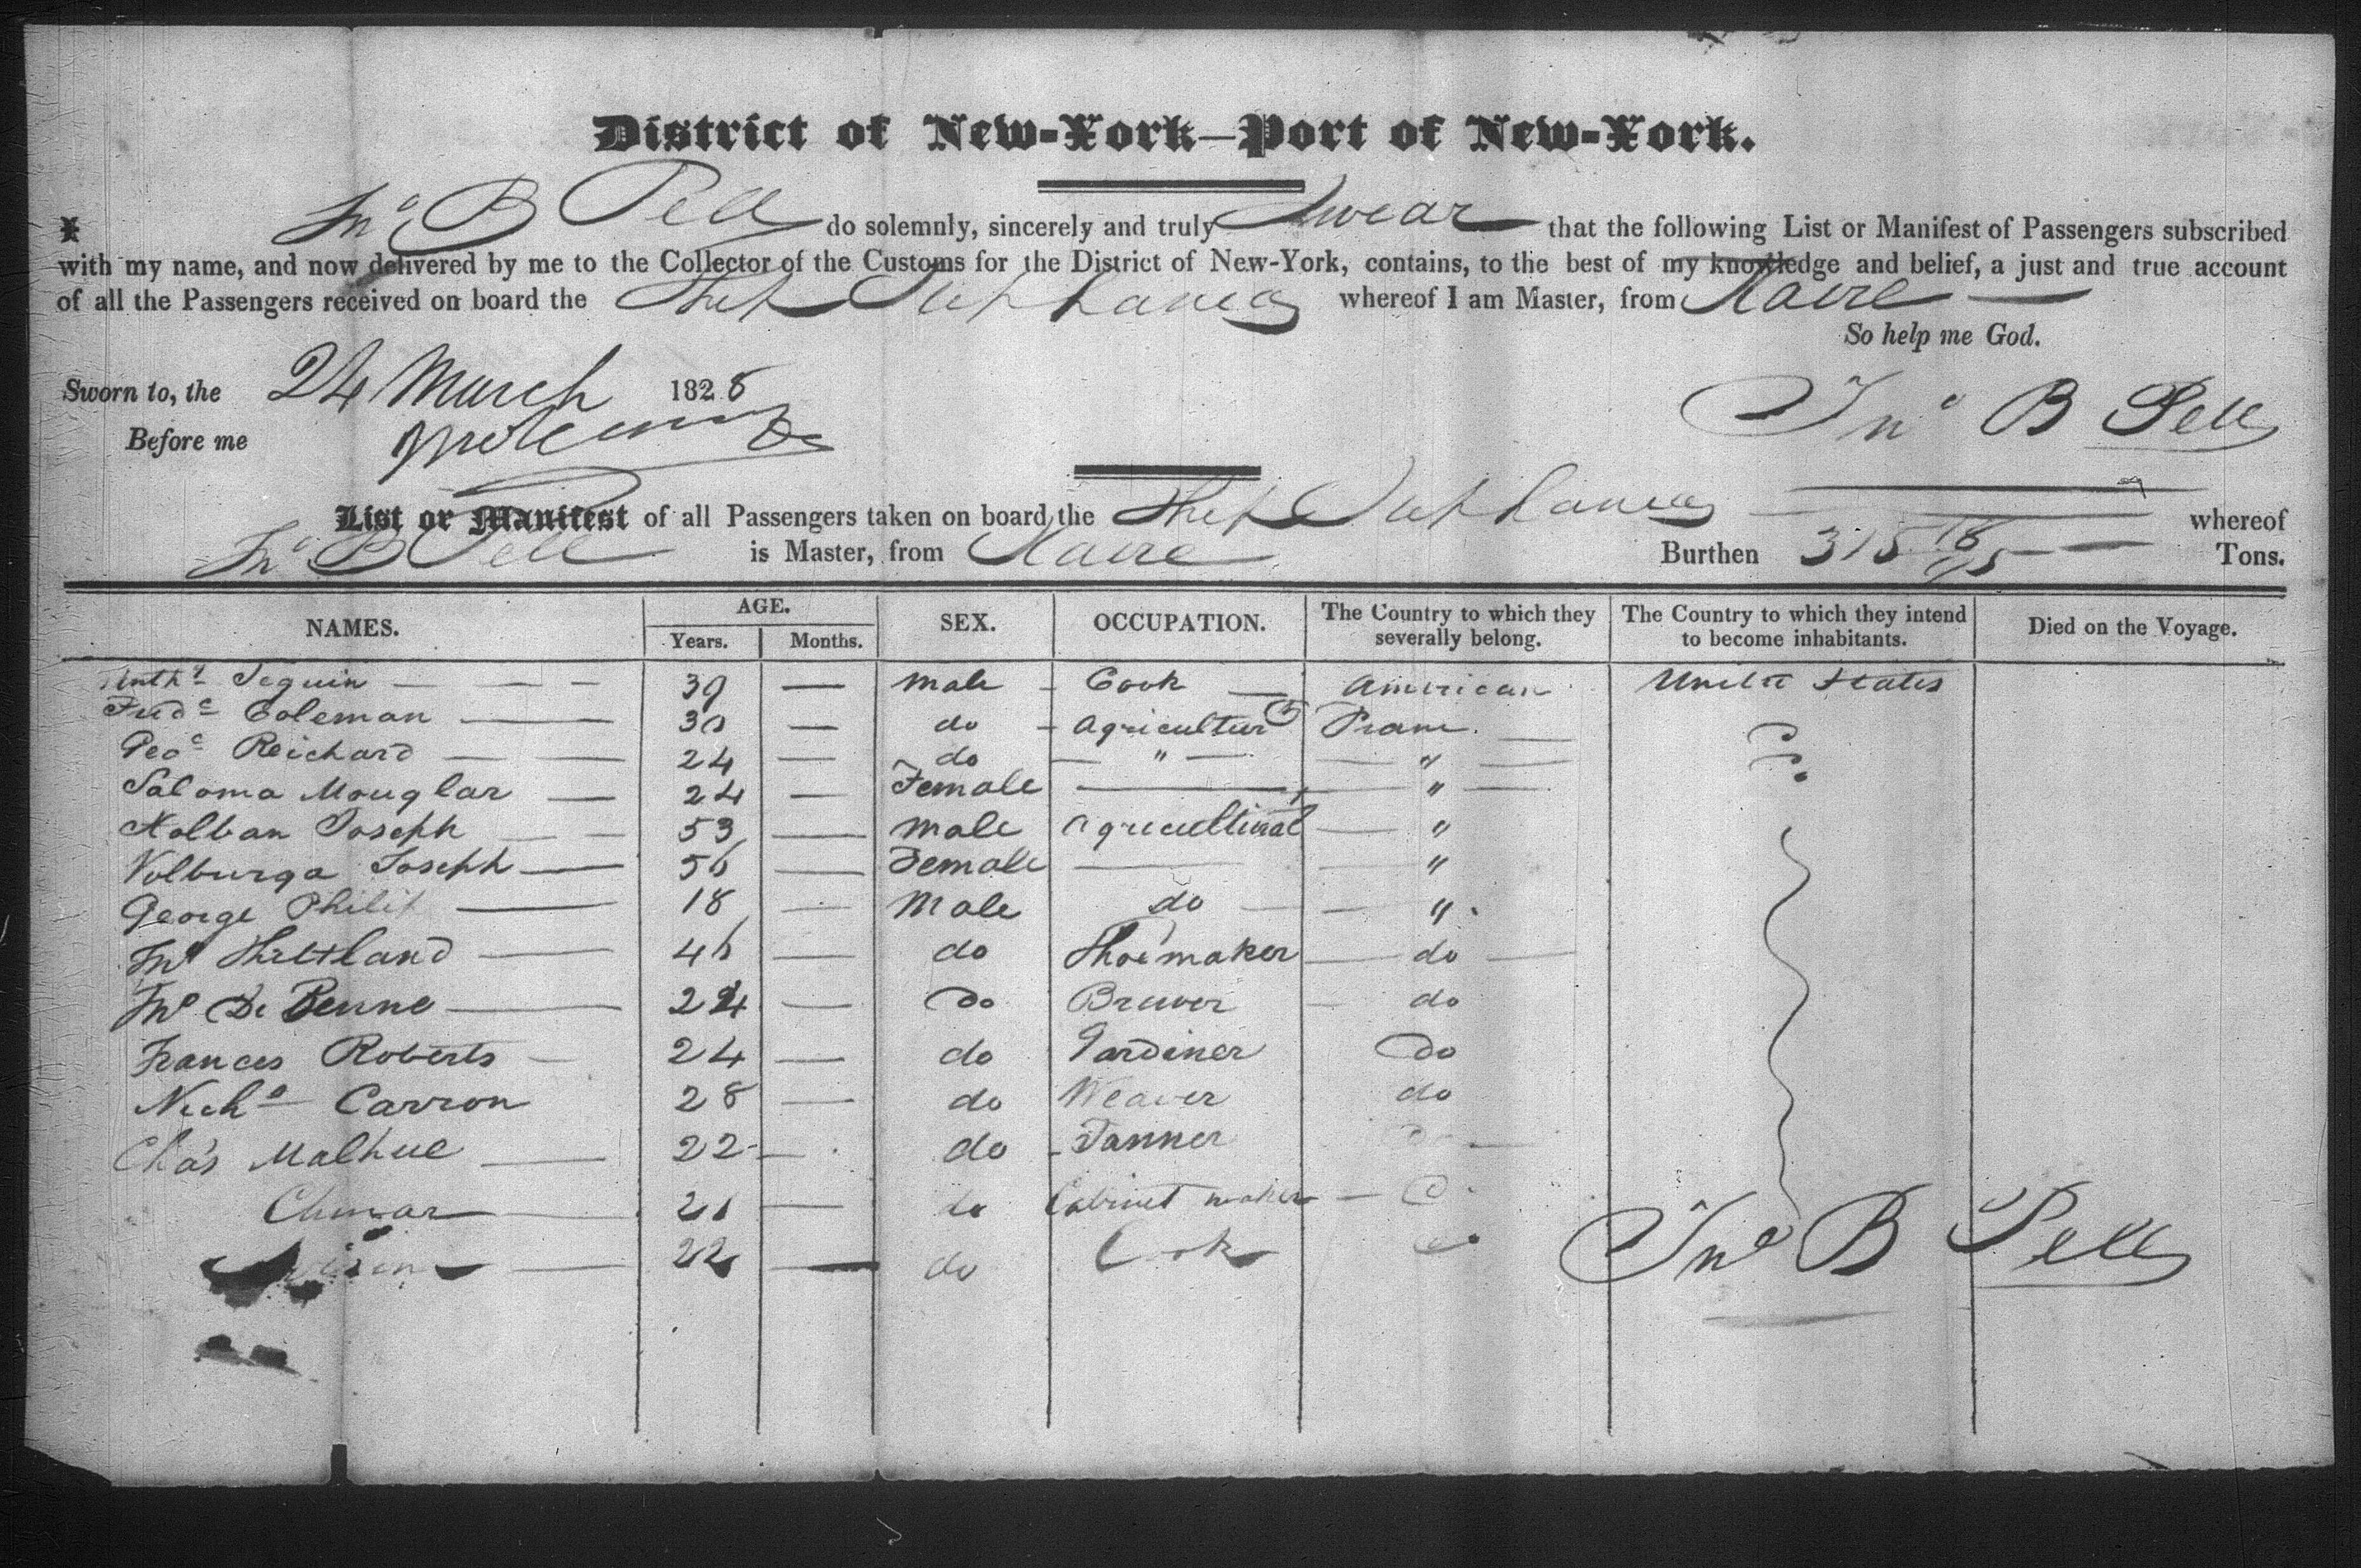 District of New-York—Port of New-York.
I Jno B Pell do solemnly, sincerely and truly Swear that the following List or Manifest of Passengers subscribed
with my name, and now delivered by me to the Collector of the Customs for the District of New-York, contains, to the best of my knowledge and belief, a just and true account
of all the Passengers received on board the Ship Stephania whereof I am Master, from Havre
So help me God.
Sworn to, the 24 March 1828
Jno B Pell
Before me
List or Manifest of all Passengers taken on board the Ship Stephania whereof
Jno B Pell is Master, from Havre Burthen 315 18/95 Tons.
NAMES. AGE. SEX. OCCUPATION. The Country to which they severally belong. The Country to which they intend to become inhabitants. Died on the Voyage.
Years. Months.
Anthy Seguin — 39 — Male Cook American United States
Fredc Coleman — 30 — do Agricultur France
Geoe Reichard — 24 — do " "
Saloma Mouglar — 24 — Female — "
Halban Joseph — 53 — Male Agricultural "
Volburga Joseph — 56 — Female — "
George Philip — 18 — Male do "
Jno Shettland — 46 — do Shoemaker do
Jno De Benne — 24 — do Brewer do
Frances Roberts — 24 — do Gardiner do
Nichs Carron 28 — do Weaver do
Chas Malhue — 22 — do Tanner
Chevar — 21 — do Cabinet maker
22 — do Cook do
Jno B Pell